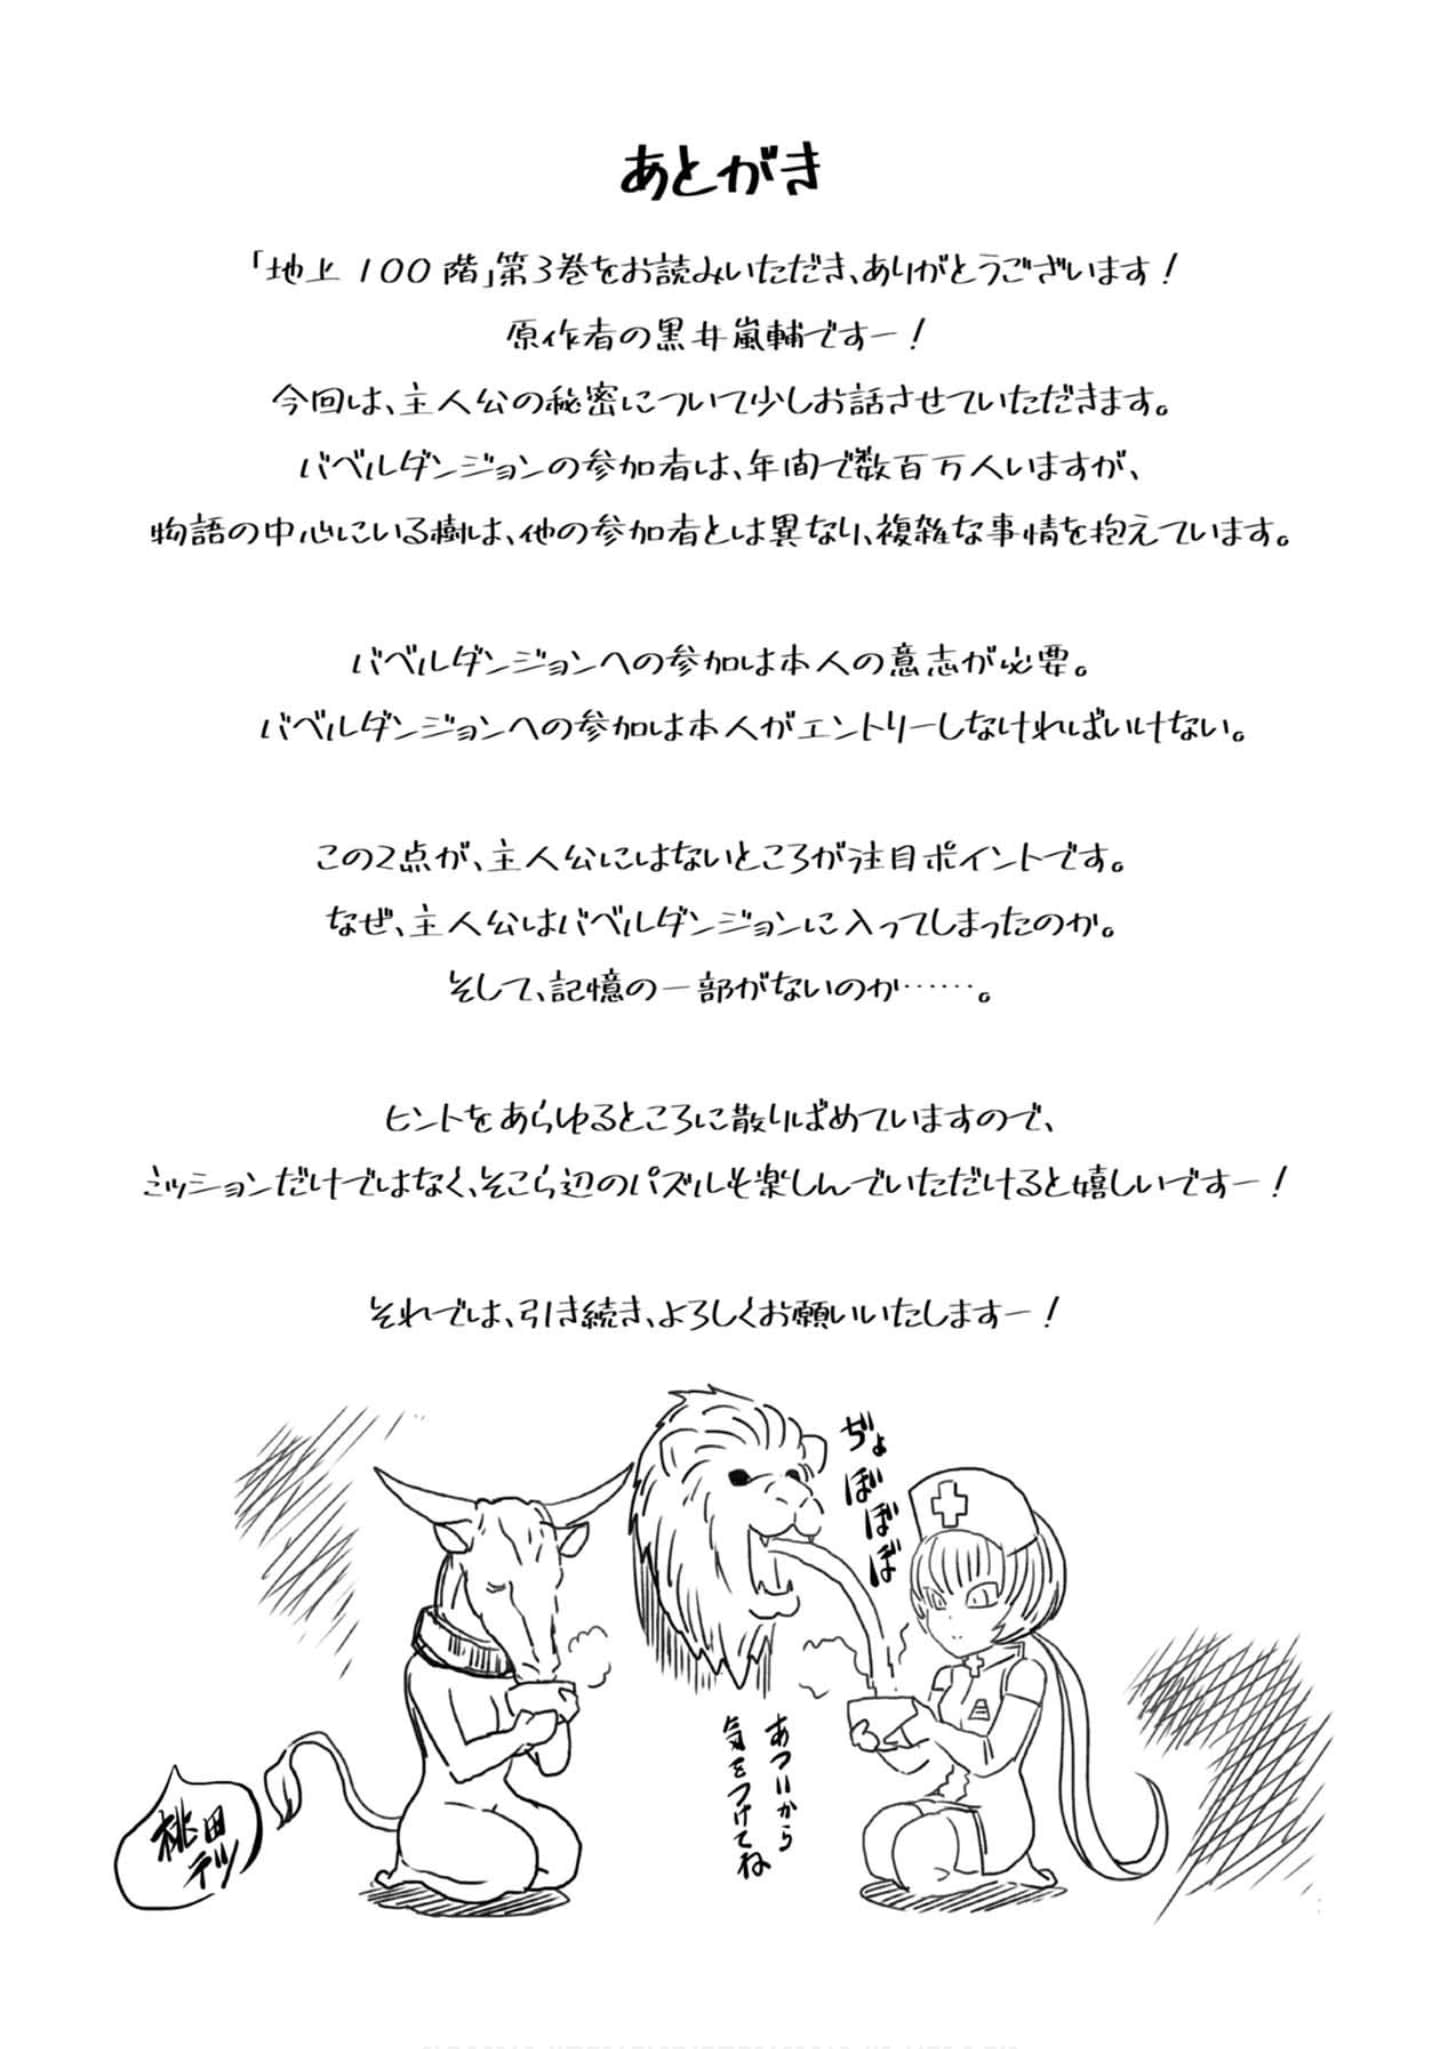 あとがき
「地上100階」第3巻をお読みいただき、ありがとうございます！
原作者の黒井嵐輔ですー！
今回は、主人公の秘密について少しお話させていただきます。
バベルダンジョンの参加者は、年間で数百万人いますが、
物語の中心にいる樹は、他の参加者とは異なり、複雑な事情を抱えています。
バベルダンジョンへの参加は本人の意志が必要。
バベルダンジョンへの参加は本人がエントリーしなければいけない。
この2点が、主人公にはないところが注目ポイントです。
なぜ、主人公はバベルダンジョンに入ってしまったのか。
そして、記憶の一部がないのか……。
ヒントをあらゆるところに散りばめていますので、
ミッションだけではなく、そこら辺のパズルも楽しんでいただけると嬉しいですー！
それでは、引き続き、よろしくお願いいたしますー！
ぢょぼぼぼ
あついから
気をつけてね
桃田
テツ